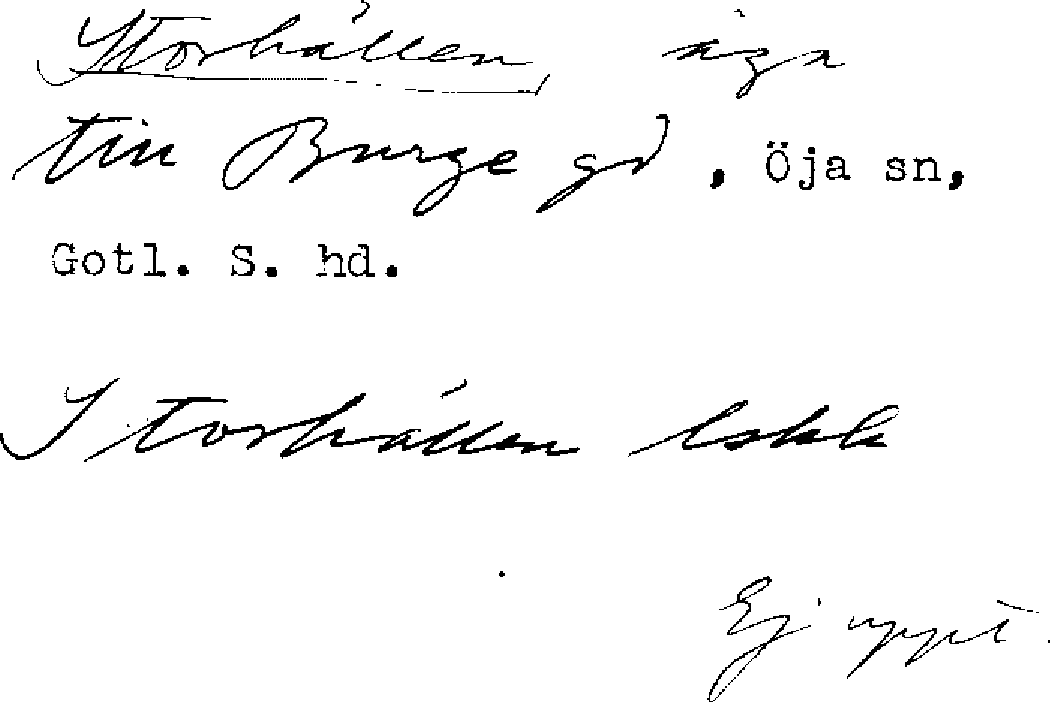 Storhällen, äga
till Burge gd, Öja sn,
Gotl. S. hd.
Storhällen lskk
Ej uppt.